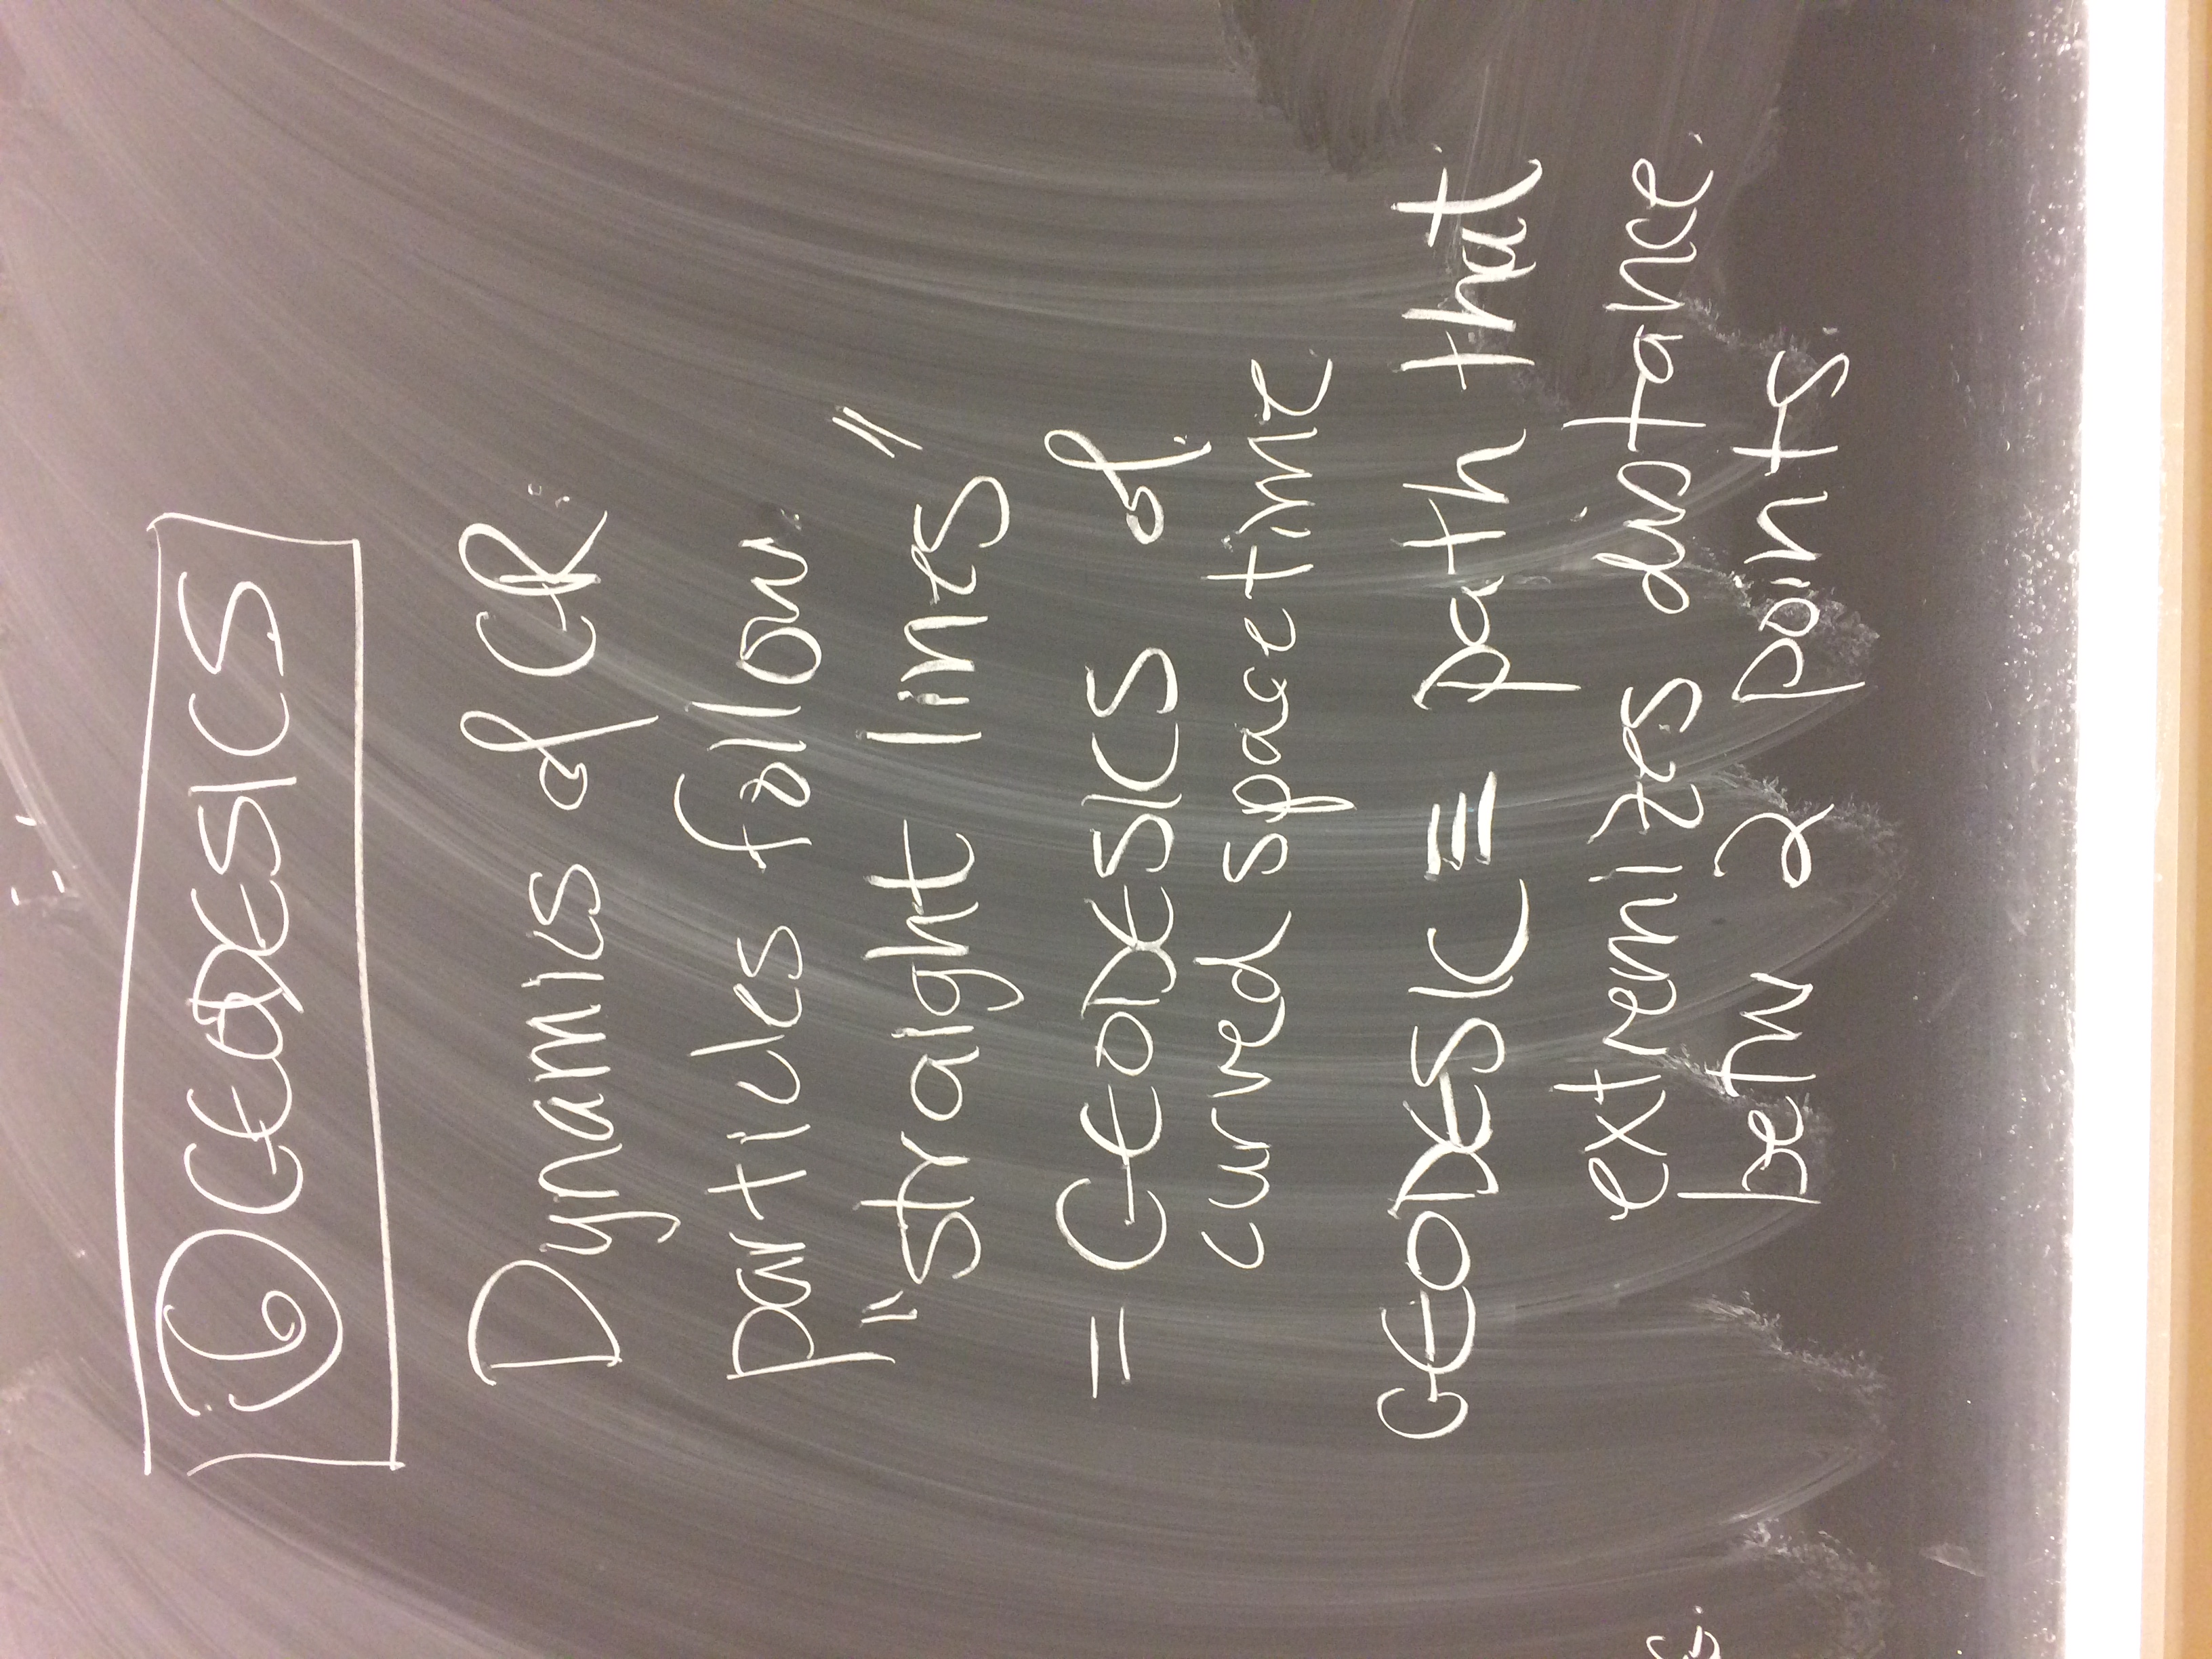 6 GEODESICS
Dynamics of GR:
particles follow
"straight lines"
= GEODESICS of
curved spacetime.
GEODESIC ≡ path that
extremizes distance
betw 2 points.